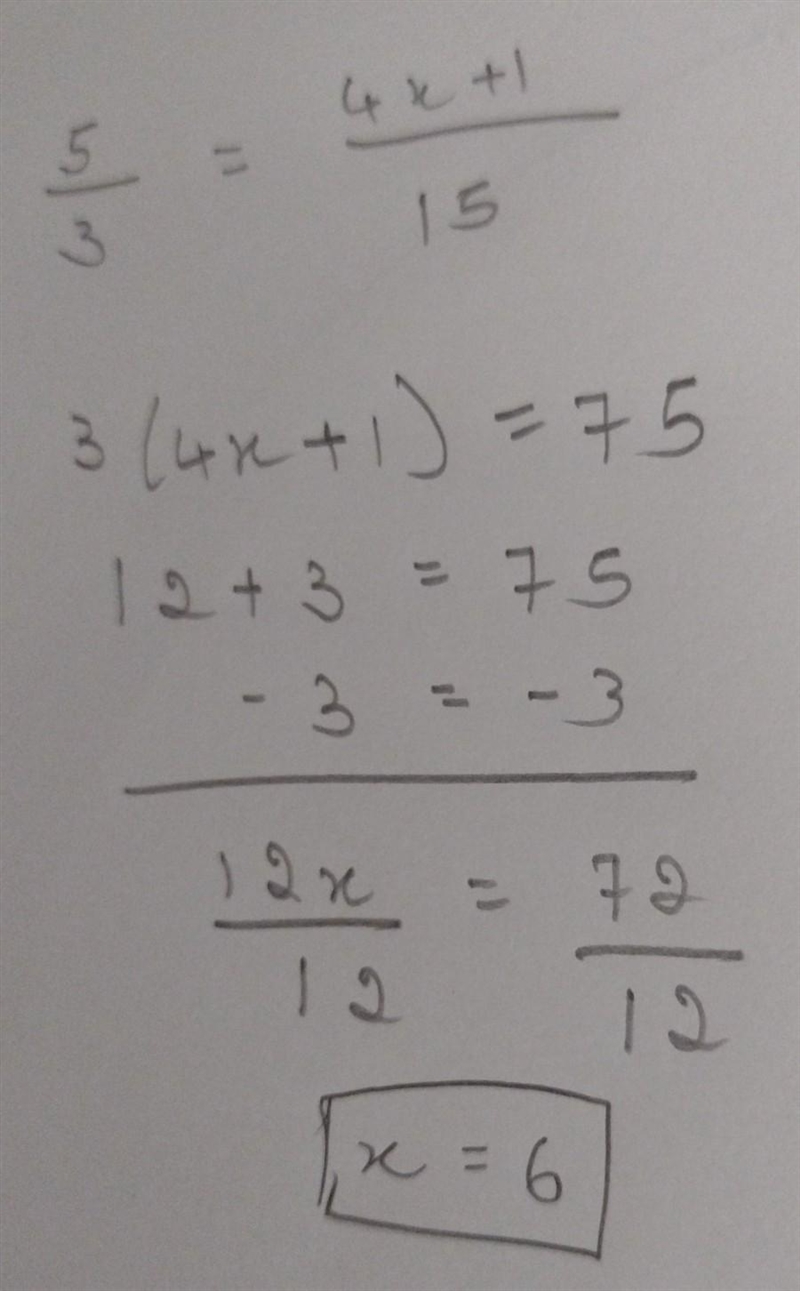 5/3 = (4x+1)/15
3(4x+1) = 75
12+3 = 75
-3 = -3
12x/12 = 72/12
x = 6